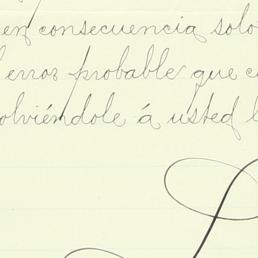 en consecuencia solo
error probable que
olviéndole á usted